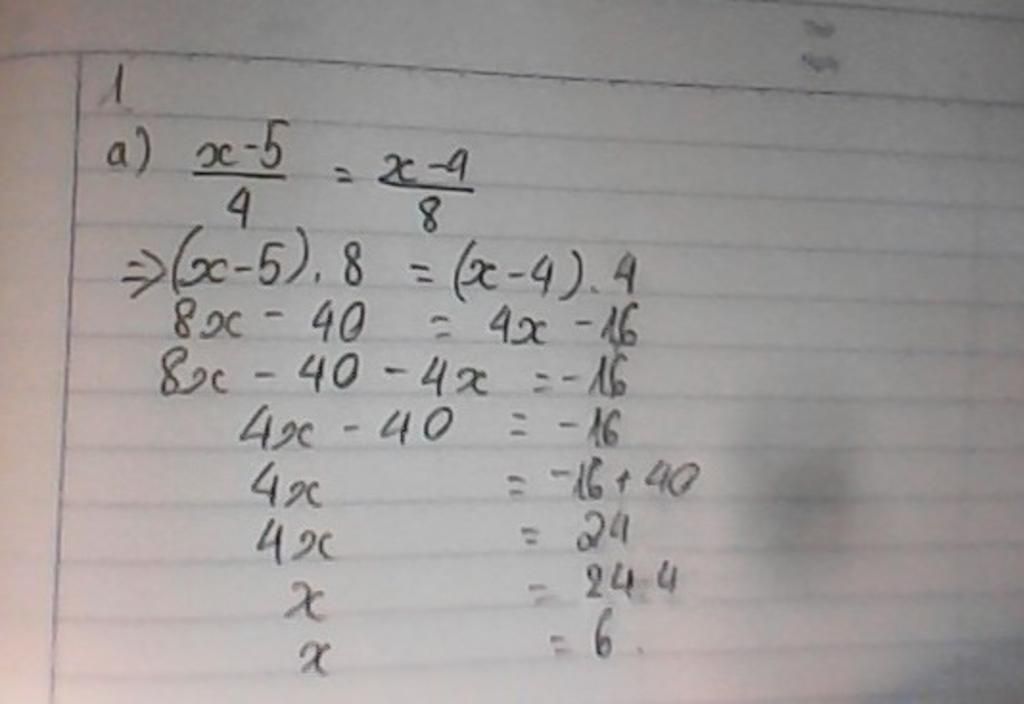 1
a) \frac{x-5}{4} = \frac{x-4}{8}
⇒ (x-5).8 = (x-4).4
8x - 40 = 4x - 16
8x - 40 - 4x = -16
4x - 40 = -16
4x = -16 + 40
4x = 24
x = 24:4
x = 6.